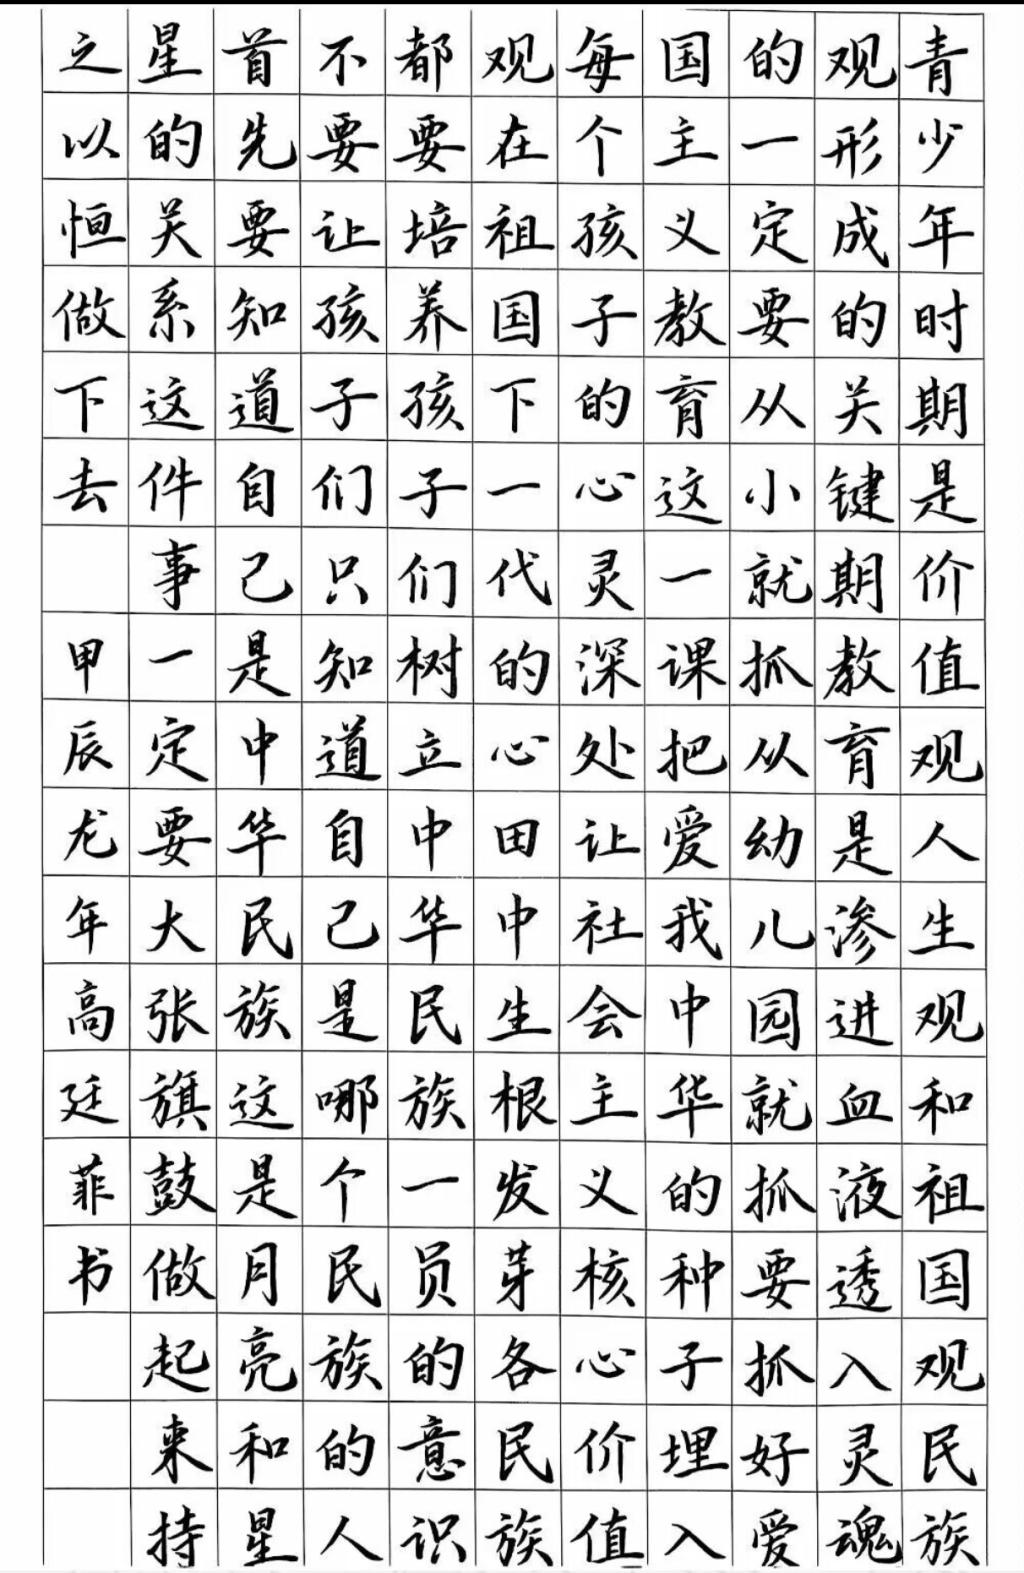 青少年时期是价值观人生观和祖国观民族
观形成的关键期教育是渗进血液透入灵魂
的一定要从小就抓从幼儿园就抓要抓好爱
国主义教育这一课把爱我中华的种子埋入
每个孩子的心灵深处让社会主义核心价值
观在祖国下一代的心田中生根发芽各民族
都要培养孩子们树立中华民族一员的意识
不要让孩子们只知道自己是哪个民族的人
首先要知道自己是中华民族这是月亮和星
星的关系这件事一定要大张旗鼓做起来持
之以恒做下去 甲辰龙年高廷菲书